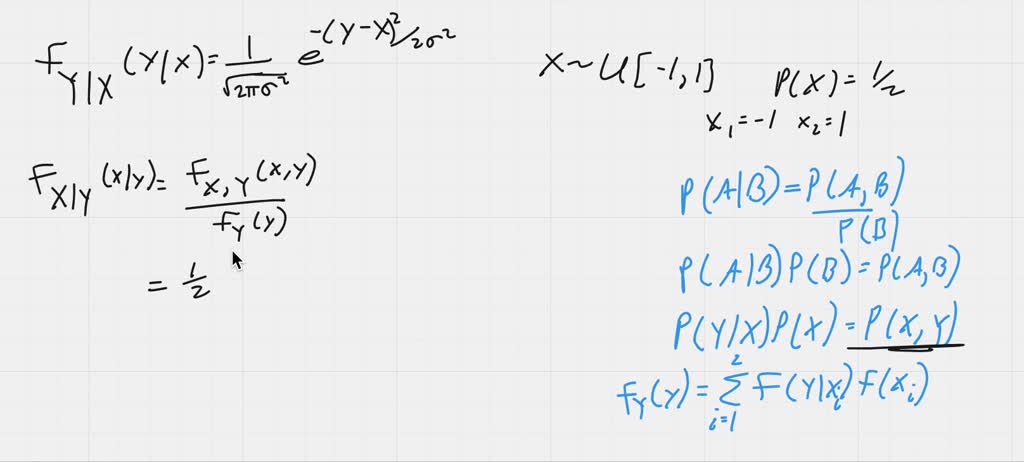 f_{Y|X}(Y|X) = \frac{1}{\sqrt{2πσ²}} e^{-(Y-X)²/2σ²}
X ~ U[-1,1]   P(X) = 1/2
x₁ = -1   x₂ = 1
f_{X|Y}(x|y) = \frac{f_{X,Y}(x,y)}{f_Y(y)}
= \frac{1}{2}
P(A|B) = \frac{P(A,B)}{P(B)}
P(A|B)P(B) = P(A,B)
P(Y|X)P(X) = P(X,Y)
f_Y(y) = \sum_{i=1}^{2} F(Y|x_i) f(x_i)